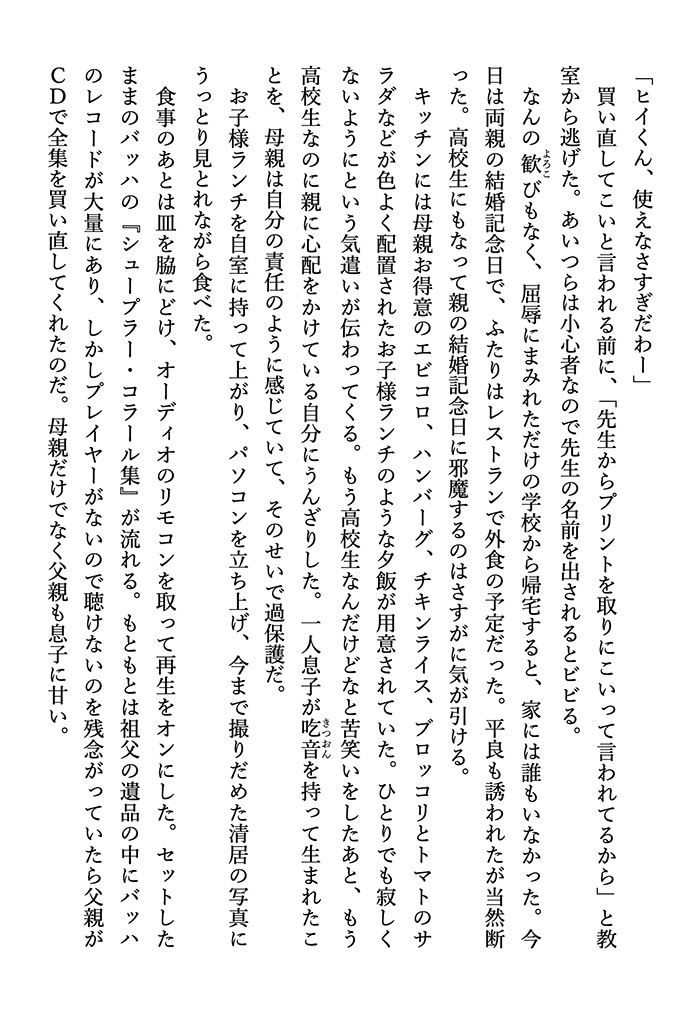 「ヒイくん、使えなさすぎだわー」
　買い直してこいと言われる前に、「先生からプリントを取りにこいって言われてるから」と教
室から逃げた。あいつらは小心者なので先生の名前を出されるとビビる。
　なんの歓びもなく、屈辱にまみれただけの学校から帰宅すると、家には誰もいなかった。今
日は両親の結婚記念日で、ふたりはレストランで外食の予定だった。平良も誘われたが当然断
った。高校生にもなって親の結婚記念日に邪魔するのはさすがに気が引ける。
　キッチンには母親お得意のエビコロ、ハンバーグ、チキンライス、ブロッコリとトマトのサ
ラダなどが色よく配置されたお子様ランチのような夕飯が用意されていた。ひとりでも寂しく
ないようにという気遣いが伝わってくる。もう高校生なんだけどなと苦笑いをしたあと、もう
高校生なのに親に心配をかけている自分にうんざりした。一人息子が吃音を持って生まれたこ
とを、母親は自分の責任のように感じていて、そのせいで過保護だ。
　お子様ランチを自室に持って上がり、パソコンを立ち上げ、今まで撮りだめた清居の写真に
うっとり見とれながら食べた。
　食事のあとは皿を脇にどけ、オーディオのリモコンを取って再生をオンにした。セットした
ままのバッハの『シュープラー・コラール集』が流れる。もともとは祖父の遺品の中にバッハ
のレコードが大量にあり、しかしプレイヤーがないので聴けないのを残念がっていたら父親が
ＣＤで全集を買い直してくれたのだ。母親だけでなく父親も息子に甘い。
よろこ
きつおん